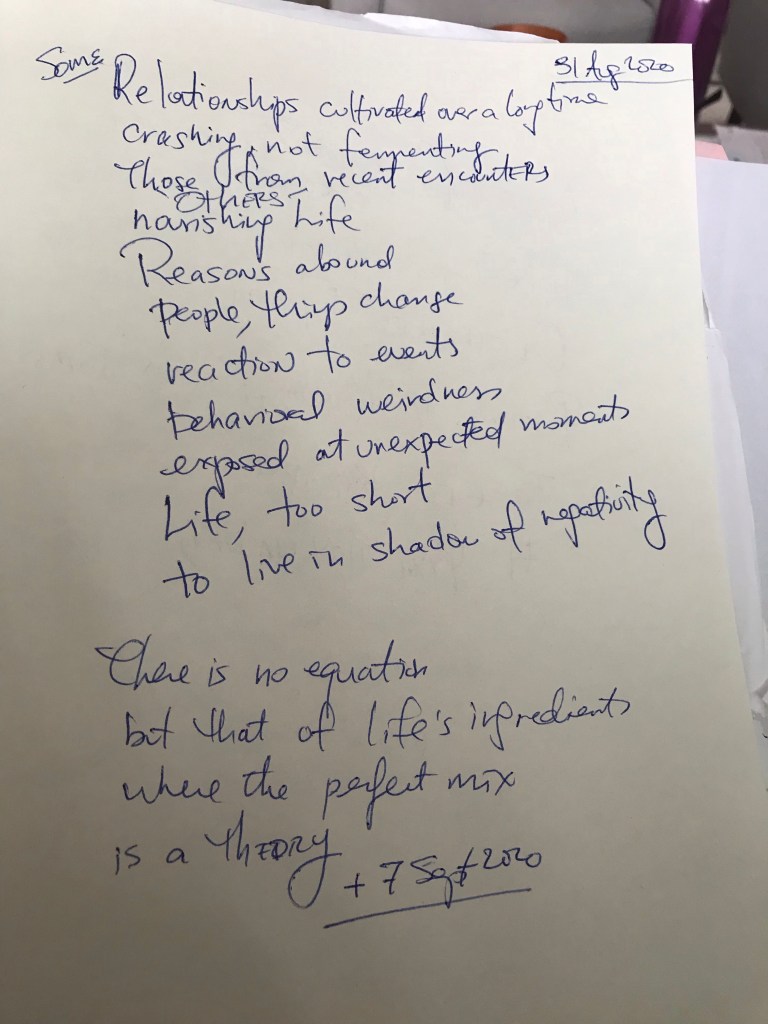 Some
31 Aug 2020
Relationships cultivated over a long time
crashing, not fermenting
Those from recent encounters
OTHERS
narishing Life
Reasons abound
People, things change
reaction to events
behavioral weirdness
exposed at unexpected moments
Life, too short
to live in shadow of negativity
There is no equation
but that of life's ingredients
where the perfect mix
is a THEORY
+ 7 Sept 2020